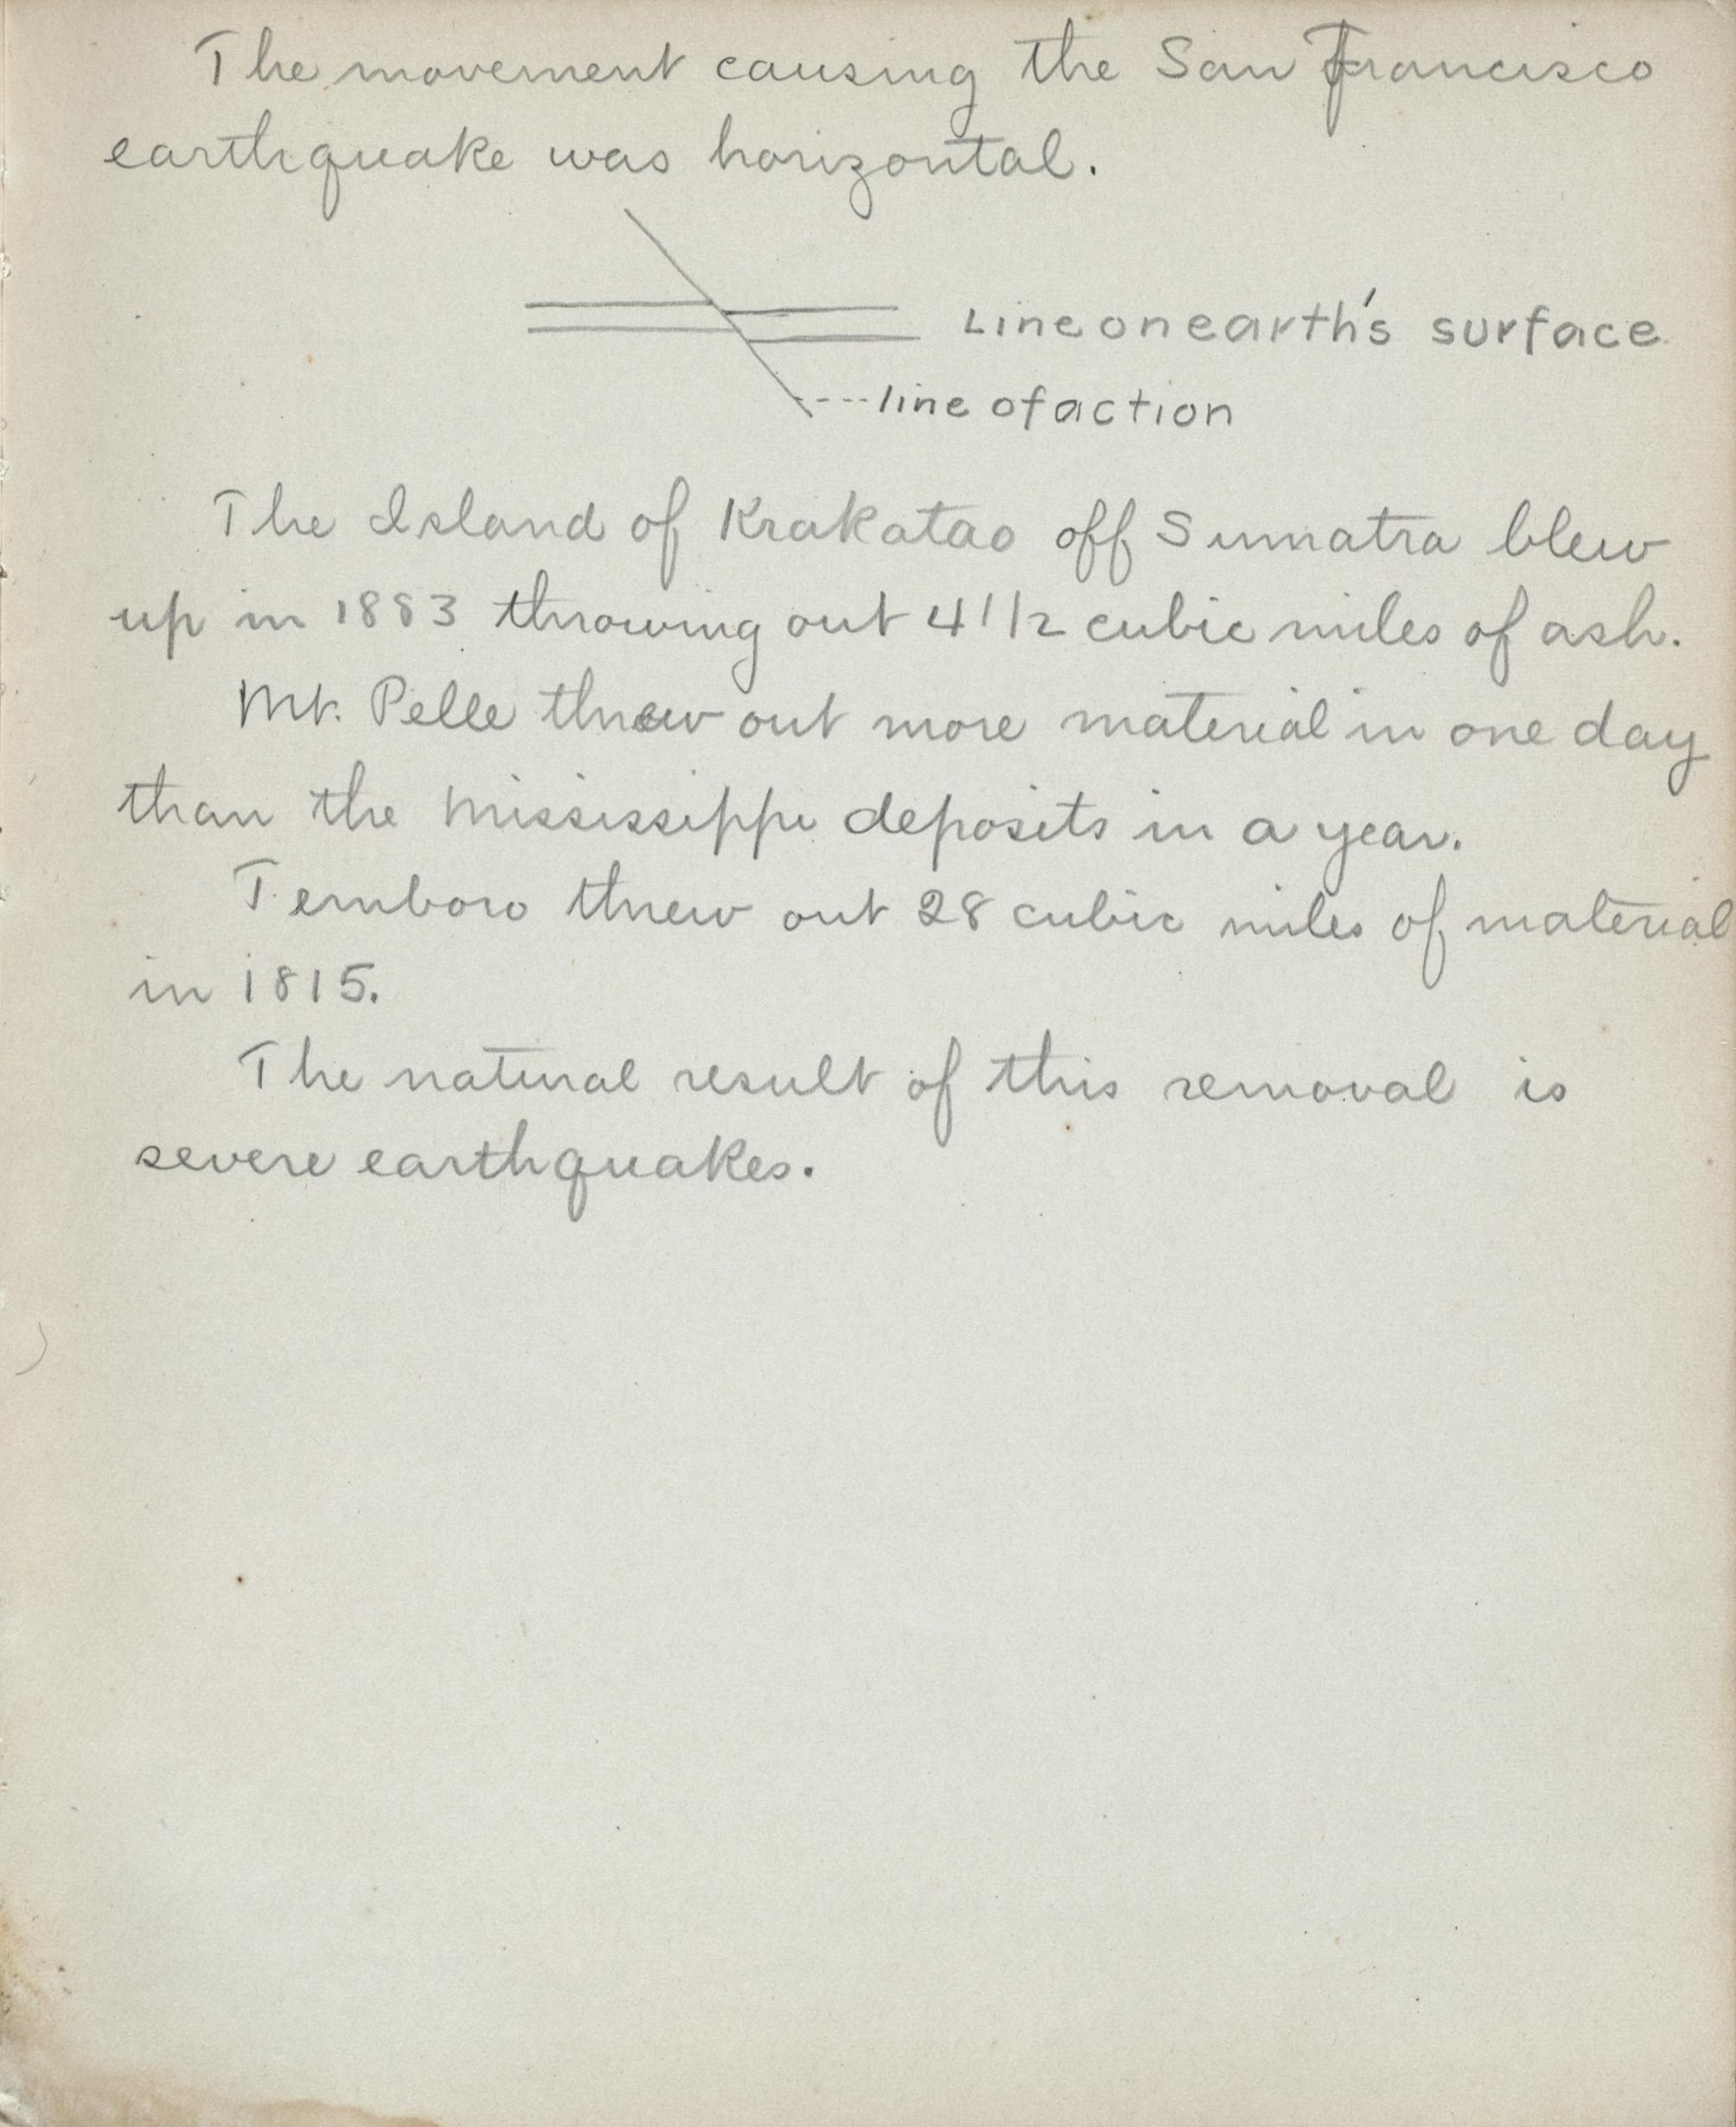 The movement causing the San Francisco
earthquake was horizontal.
Line on earth's surface
line of action
The Island of Krakatao off Sumatra blew
up in 1883 throwing out 4 1/2 cubic miles of ash.
Mt. Pelle threw out more material in one day
than the Mississippi deposits in a year.
Temboro threw out 28 cubic miles of material
in 1815.
The natural result of this removal is
severe earthquakes.